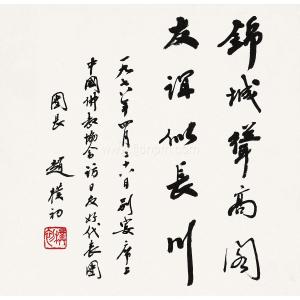 錦城聳高閣
友誼似長川
一九七八年四月十六日別宴席上
中國佛教協会訪日友好代表團
團長 趙樸初